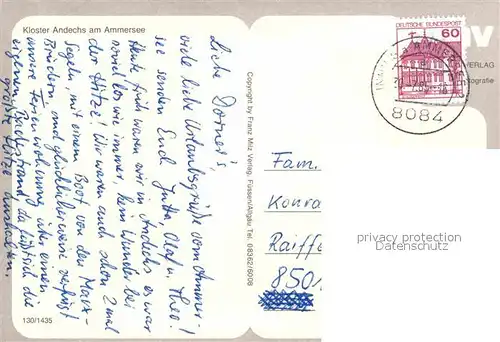 Kloster Andechs am Ammersee
Liebe Dorner's,
viele liebe Urlaubsgrüße vom Ammer-
see senden Euch Jutta Olaf u. Theo!
Heute früh waren wir in Andechs es war
was los wie immer, kein Wunder bei
der Hitze! Wir waren auch schon 2 mal
Segeln, mit einem Boot von den
Brüdern und glücklicherweise verfügt
unsere Ferienwohnung über einen
eigenen Badestrand, da läßt sich die
größte Hitze aushalten.
130/1435
Copyright by Franz Milz Verlag, Füssen/Allgäu Tel. 08362/6008
DEUTSCHE BUNDESPOST
60
8084
VERLAG
tografie
Fam.
Konra
Raiffe
8501
privacy protection
Datenschutz